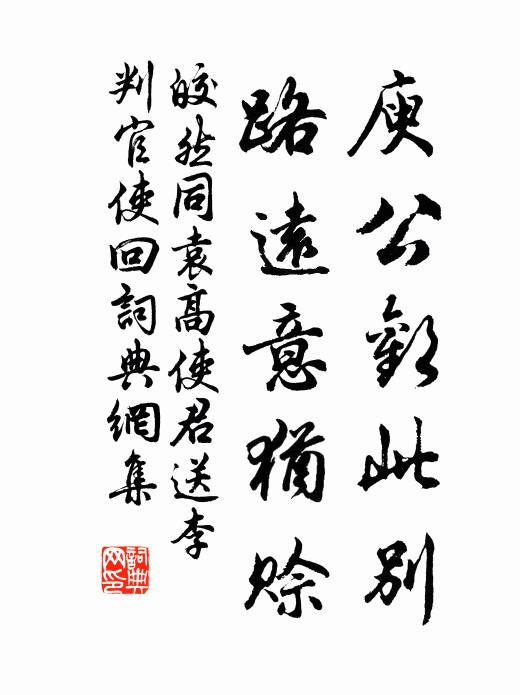 庾公歡此別
路遠意猶賒
皎然同袁高使君送李
判官使回詞典網集
詞典網印